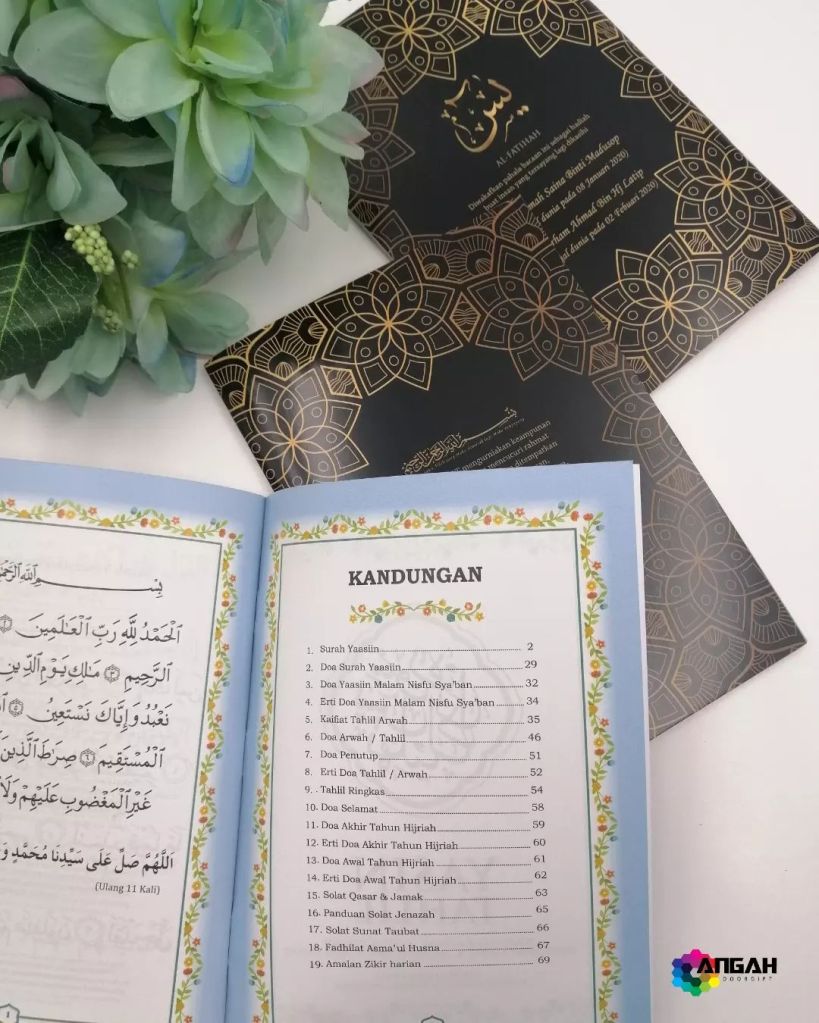 يس
AL-FATIHAH
Diwakafkan pahala bacaan ini sebagai hadiah
buat insan yang tersayang lagi dikasihi
mah Saina Binti Madusop
dunia pada 08 Januari 2020)
rham Ahmad Bin Hj Latip
al dunia pada 02 Febuari 2020)
mengurniakan keampunan
mencucuri rahmat
ditempatkan
بِسْمِ اللَّهِ الرَّحْمَٰ
الْحَمْدُ لِلَّهِ رَبِّ الْعَالَمِينَ
الرَّحِيمِ ۝٣ مَالِكِ يَوْمِ الدِّينِ
نَعْبُدُ وَإِيَّاكَ نَسْتَعِينُ ۝٥
الْمُسْتَقِيمَ ۝٦ صِرَاطَ الَّذِينَ
غَيْرِ الْمَغْضُوبِ عَلَيْهِمْ وَلَا
اللَّهُمَّ صَلِّ عَلَى سَيِّدِنَا مُحَمَّدٍ وَ
(Ulang 11 Kali)
KANDUNGAN
1. Surah Yaasiin 2
2. Doa Surah Yaasiin 29
3. Doa Yaasiin Malam Nisfu Sya'ban 32
4. Erti Doa Yaasiin Malam Nisfu Sya'ban 34
5. Kaifiat Tahlil Arwah 35
6. Doa Arwah / Tahlil 46
7. Doa Penutup 51
8. Erti Doa Tahlil / Arwah 52
9. Tahlil Ringkas 54
10. Doa Selamat 58
11. Doa Akhir Tahun Hijriah 59
12. Erti Doa Akhir Tahun Hijriah 60
13. Doa Awal Tahun Hijriah 61
14. Erti Doa Awal Tahun Hijriah 62
15. Solat Qasar & Jamak 63
16. Panduan Solat Jenazah 65
17. Solat Sunat Taubat 66
18. Fadhilat Asma'ul Husna 67
19. Amalan Zikir harian 69
ANGAH
DOORGIFT